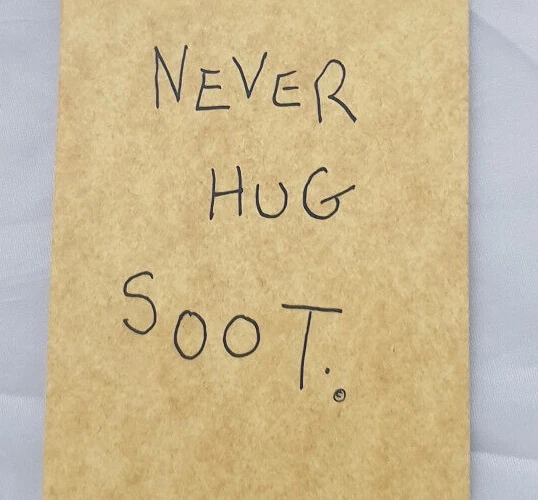 NEVER
HUG
SOOT.